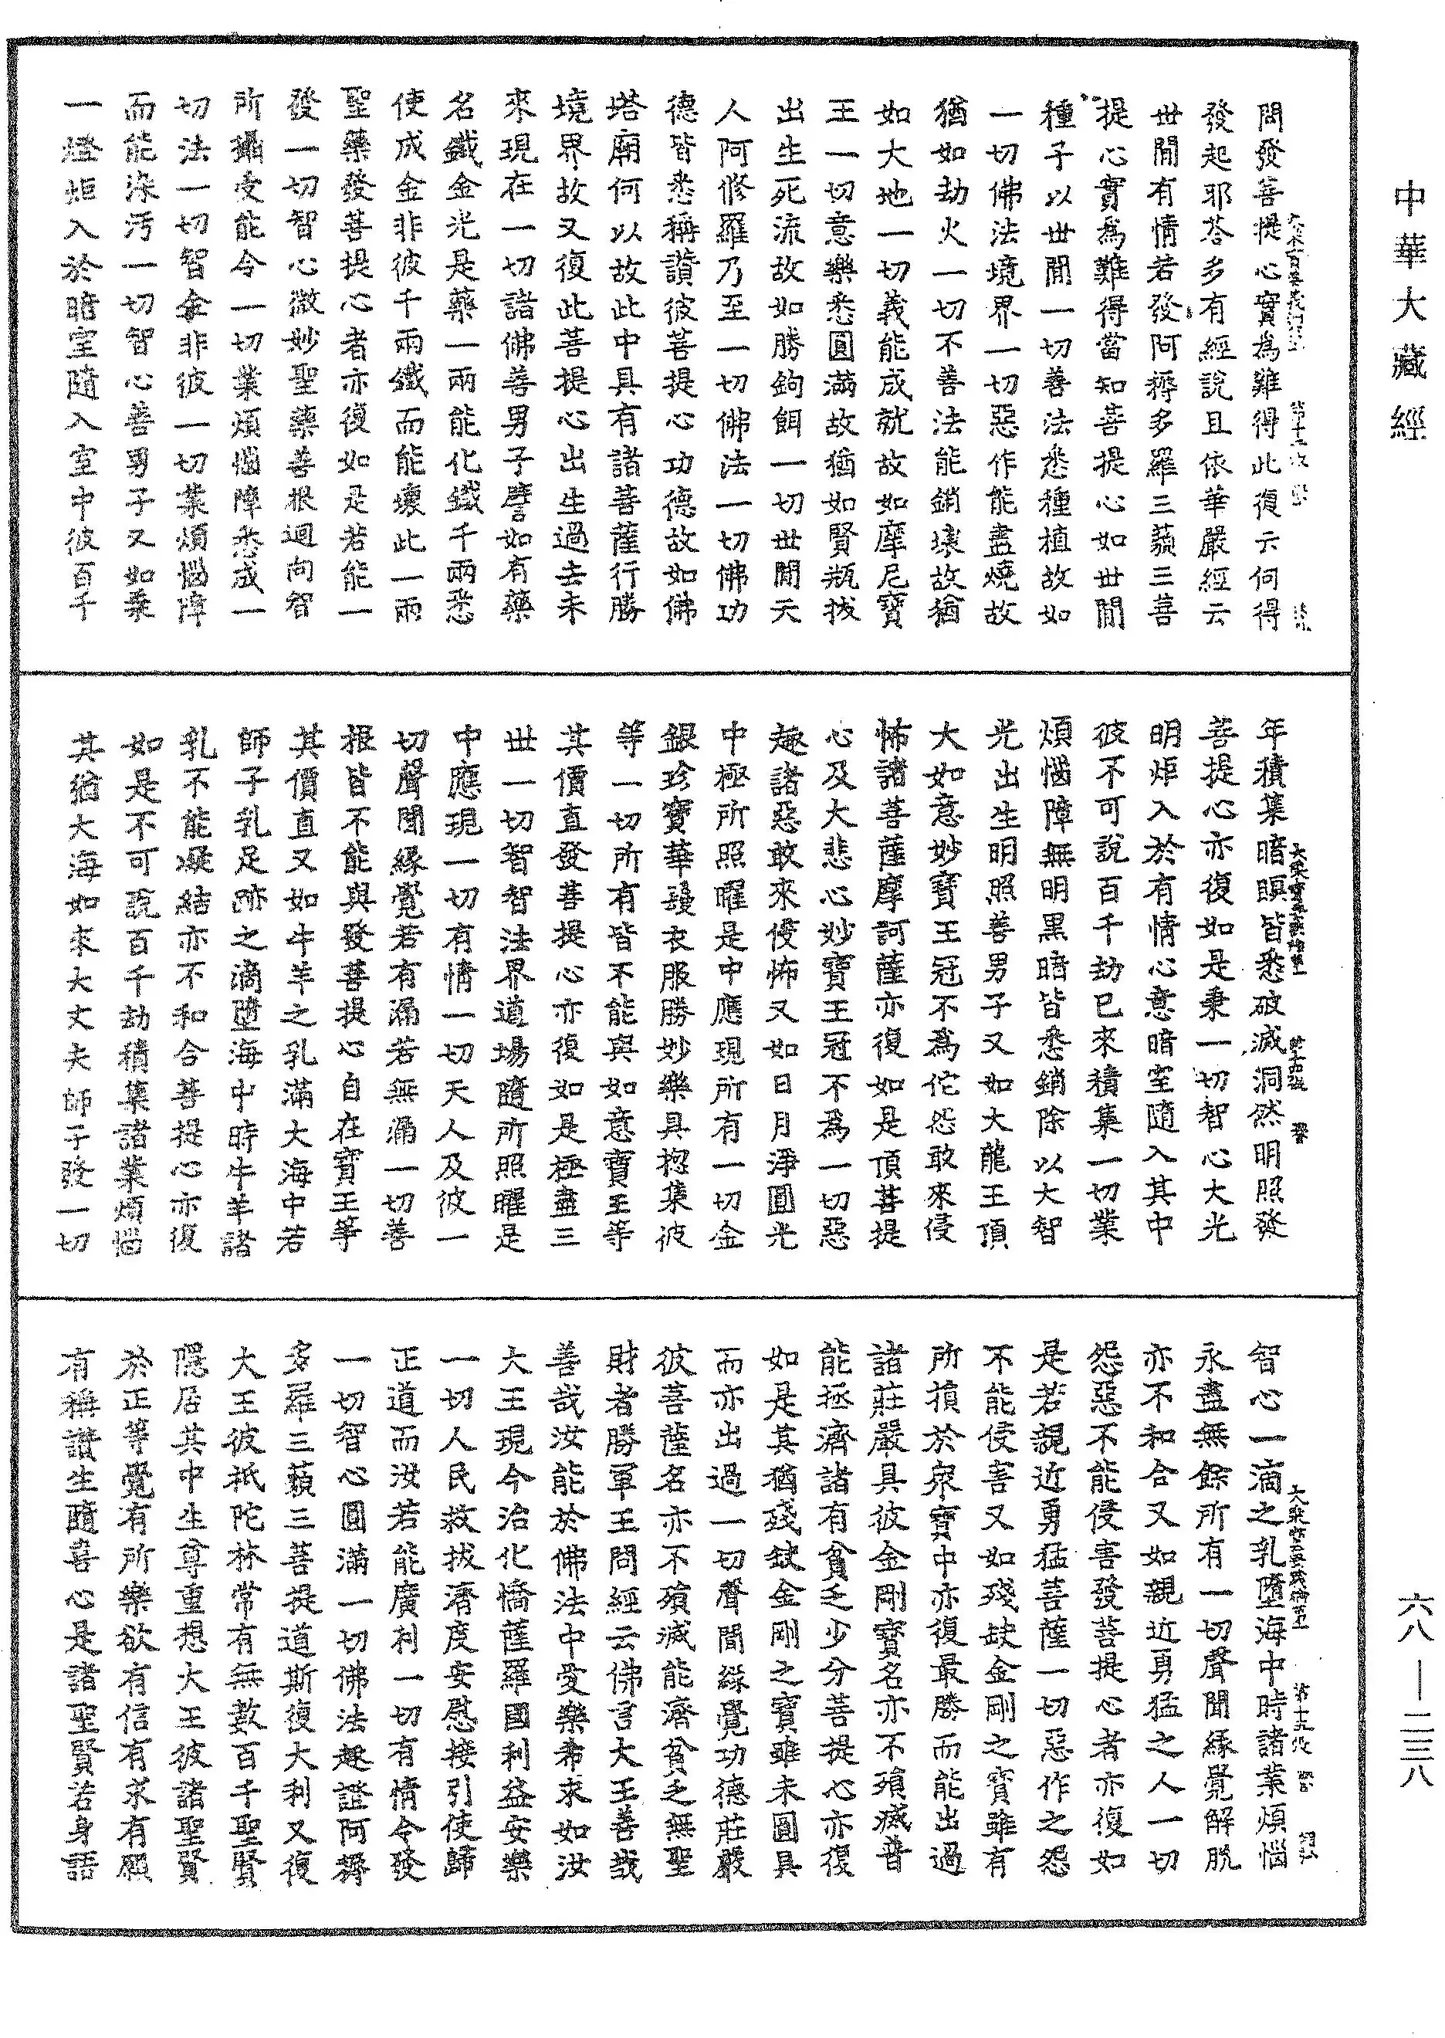 中華大藏經
問發菩提心實為難得此復云何得
發起耶荅多有經說且依華嚴經云
世閒有情若發阿耨多羅三藐三菩
提心實為難得當知菩提心如世閒
種子以世閒一切善法悉種植故如
一切佛法境界一切惡作能盡燒故
猶如劫火一切不善法能銷壞故猶
如大地一切義能成就故如摩尼寶
王一切意樂悉圓滿故猶如賢瓶拔
出生死流故如勝鉤餌一切世閒天
人阿修羅乃至一切佛法一切佛功
德皆悉稱讚彼菩提心功德故如佛
塔廟何以故此中具有諸菩薩行勝
境界故又復此菩提心出生過去未
來現在一切諸佛善男子譬如有藥
名鐵金光是藥一兩能化鐵千兩悉
使成金非彼千兩鐵而能壞此一兩
聖藥發菩提心者亦復如是若能一
發一切智心微妙聖藥善根迴向智
所攝受能令一切業煩惱障悉成一
切法一切智金非彼一切業煩惱障
而能染汚一切智心善男子又如乘
一燈炬入於暗室隨入室中彼百千
年積集暗瞑皆悉破滅洞然明照發
菩提心亦復如是秉一切智心大光
明炬入於有情心意暗室隨入其中
彼不可說百千劫已來積集一切業
煩惱障無明黑暗皆悉銷除以大智
光出生明照善男子又如大龍王頂
大如意妙寶王冠不為佗怨敢來侵
怖諸菩薩摩訶薩亦復如是頂菩提
心及大悲心妙寶王冠不為一切惡
趣諸惡敢來侵怖又如日月淨圓光
中極所照曜是中應現所有一切金
銀珍寶華鬘衣服勝妙樂具揔集彼
等一切所有皆不能與如意寶王等
其價直發菩提心亦復如是極盡三
世一切智智法界道場隨所照曜是
中應現一切有情一切天人及彼一
切聲聞緣覺若有漏若無漏一切善
根皆不能與發菩提心自在寶王等
其價直又如牛羊之乳滿大海中若
師子乳足跡之滴墮海中時牛羊諸
乳不能凝結亦不和合菩提心亦復
如是不可說百千劫積集諸業煩惱
其猶大海如來大丈夫師子發一切
智心一滴之乳墮海中時諸業煩惱
永盡無餘所有一切聲聞緣覺解脫
亦不和合又如親近勇猛之人一切
怨惡不能侵害發菩提心者亦復如
是若親近勇猛菩薩一切惡作之怨
不能侵害又如殘缺金剛之寶雖有
所損於衆寶中亦復最勝而能出過
諸莊嚴具彼金剛寶名亦不殞滅普
能拯濟諸有貧乏少分菩提心亦復
如是其猶殘缺金剛之寶雖未圓具
而亦出過一切聲聞緣覺功德莊嚴
彼菩薩名亦不殞滅能濟貧乏無聖
財者勝軍王問經云佛言大王善哉
善哉汝能於佛法中愛樂希求如汝
大王現今治化憍薩羅國利益安樂
一切人民救拔濟度安慰接引使歸
正道而汝若能廣利一切有情令發
一切智心圓滿一切佛法趣證阿耨
多羅三藐三菩提道斯復大利又復
大王彼祇陀林常有無數百千聖賢
隱居其中生尊重想大王彼諸聖賢
於正等覺有所樂欲有信有求有願
有稱讚生隨喜心是諸聖賢若身語
六八—二三八